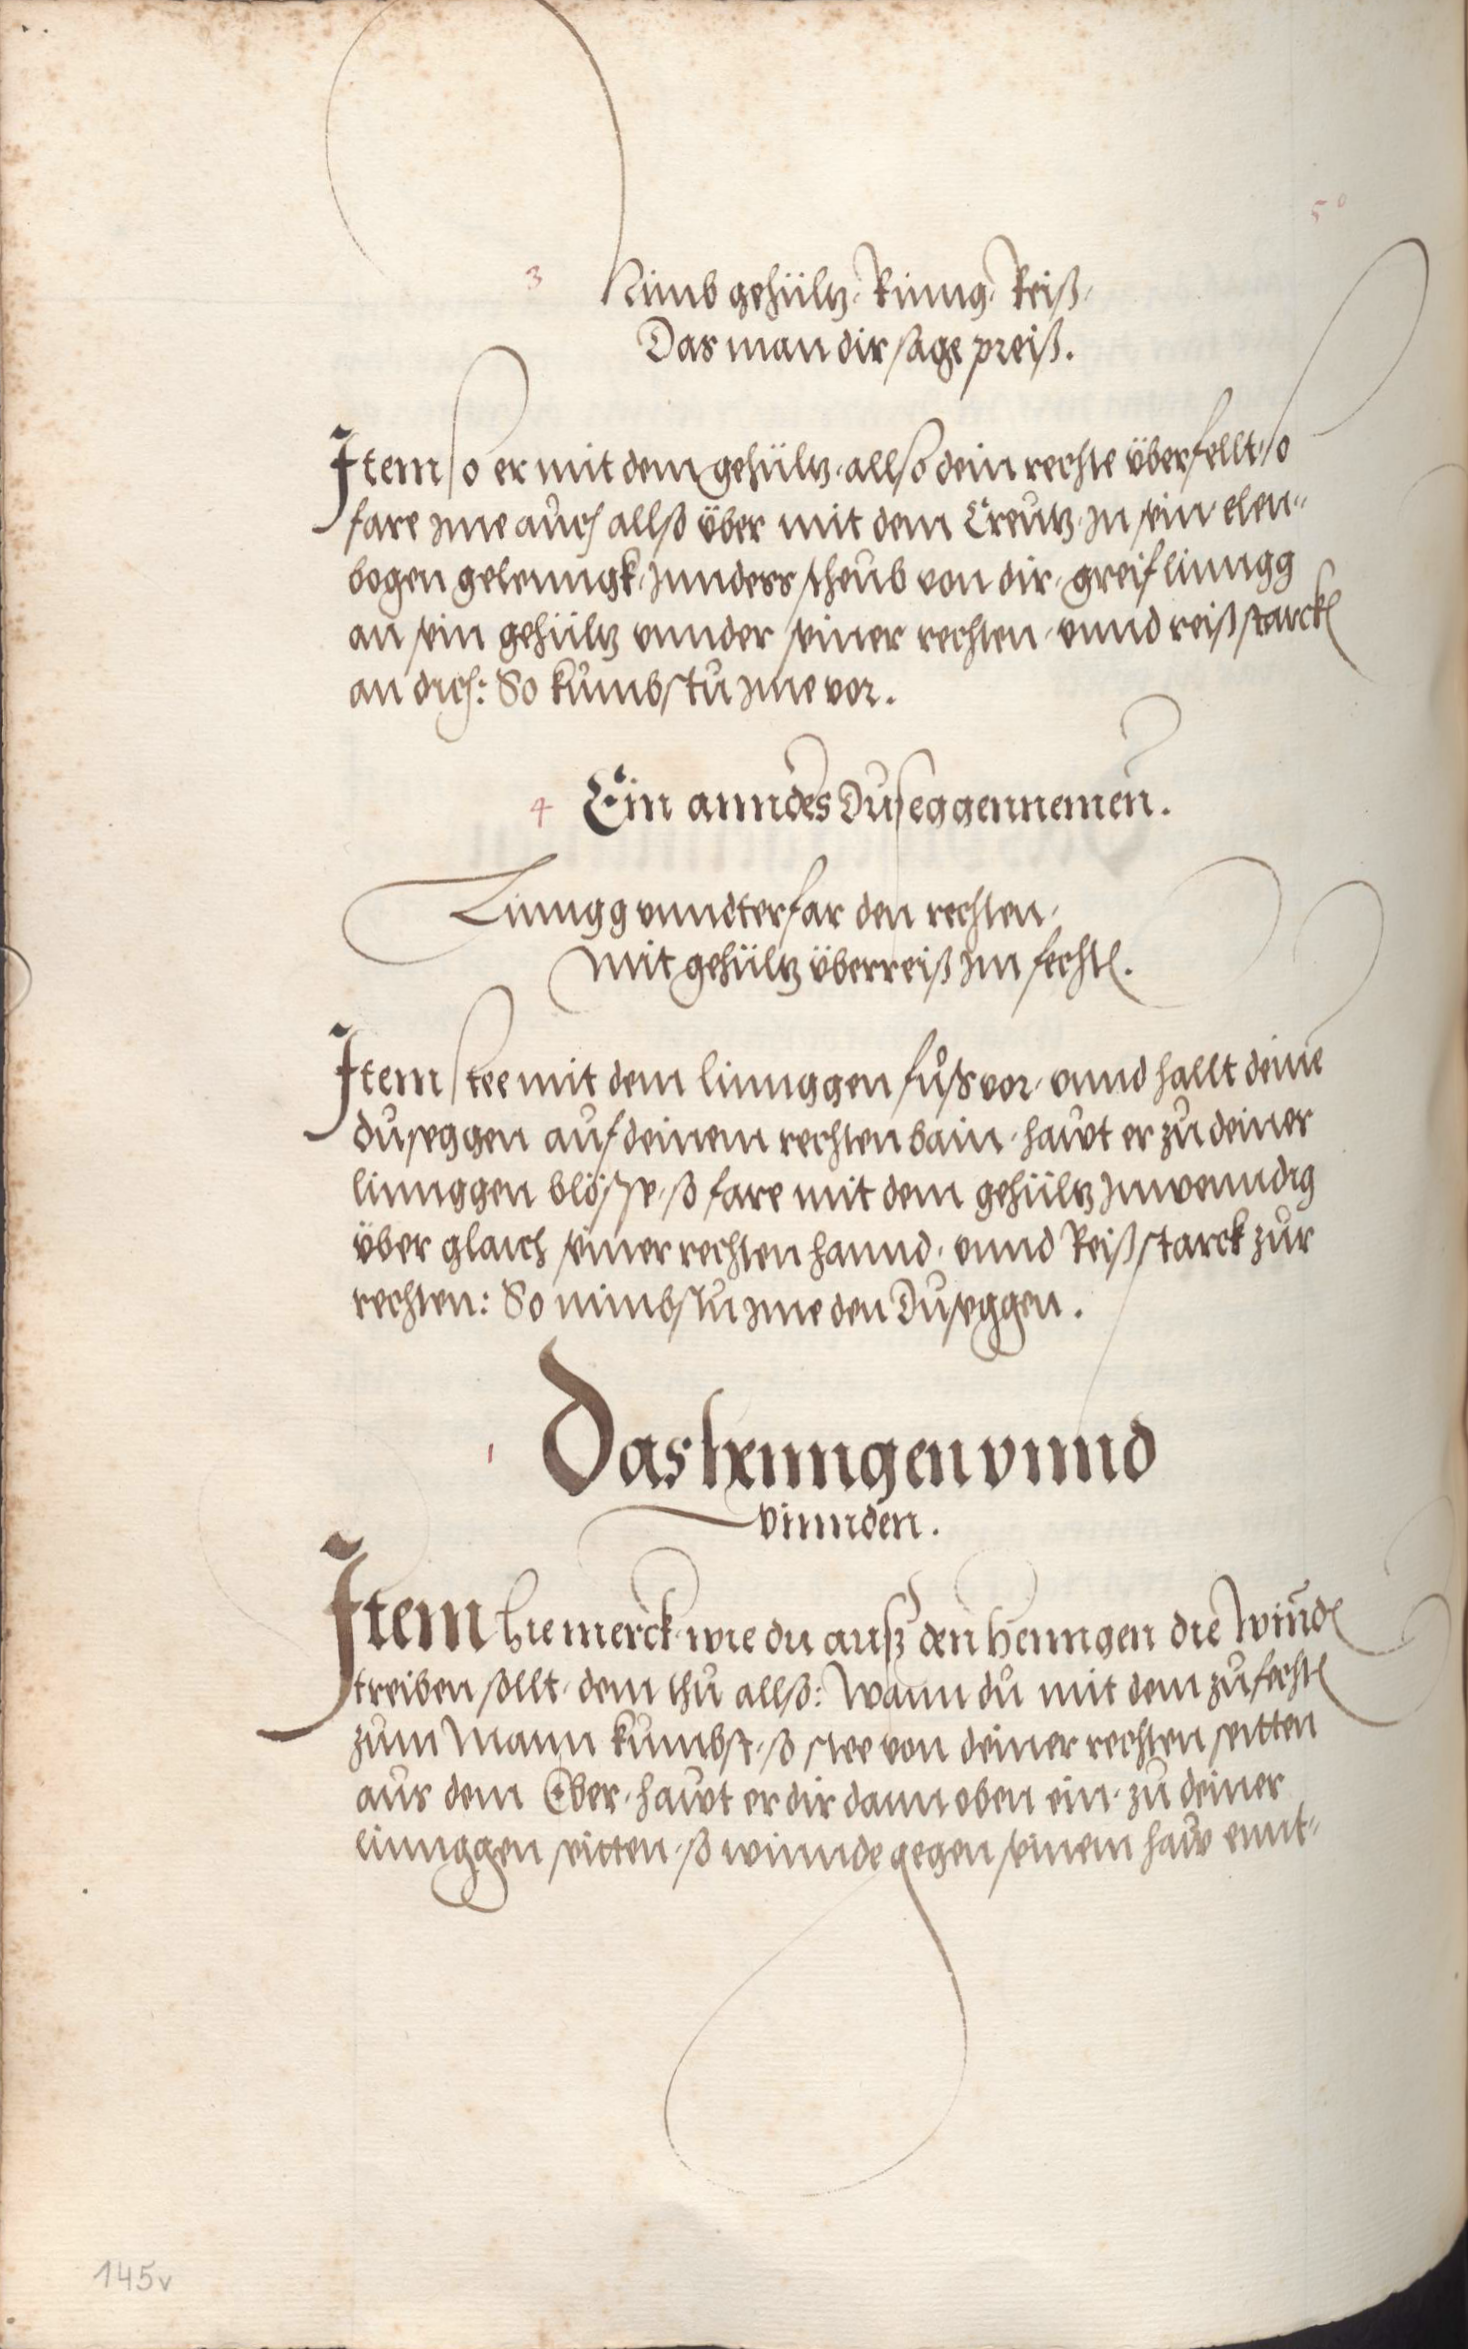 50
3 Nimb gehültz, Ringg, Reiß,
Das man dir sage preiß.
Item so er mit dem gehültz, allso dein rechte überfellt, so
fare ime auch allso über mit dem Creutz, in sein elen-
bogen gelenngk, inndess scheub von dir, greif linngg
an sein gehültz vnnder seiner rechten, vnnd reiß starck
an dich: So kumbstu ime vor.
4 Ein annders Duseggennemen.
Linngg vnndterfar den rechten,
Mit gehültz überreiß im fechten.
Item stee mit dem linnggen fuß vor, vnnd hallt deine
duseggen auf deinem rechten bain, hawt er zu deiner
linnggen blösse, so fare mit dem gehültz inwenndig
über gleich seiner rechten hannd, vnnd Reiß starck zur
rechten: So nimbstu ime den Duseggen.
1 Das henngen vnnd
vinnden.
Item hie merck, wie du auß den henngen die winden
treiben sollt, dem thu allso: Wann du mit dem zufechten
zum Mann kumbst, so stee von deiner rechten seitten
aus dem Eber, hawt er dir dann oben ein, zu deiner
linnggen seitten, so winnde gegen seinem haw ennt-
145v